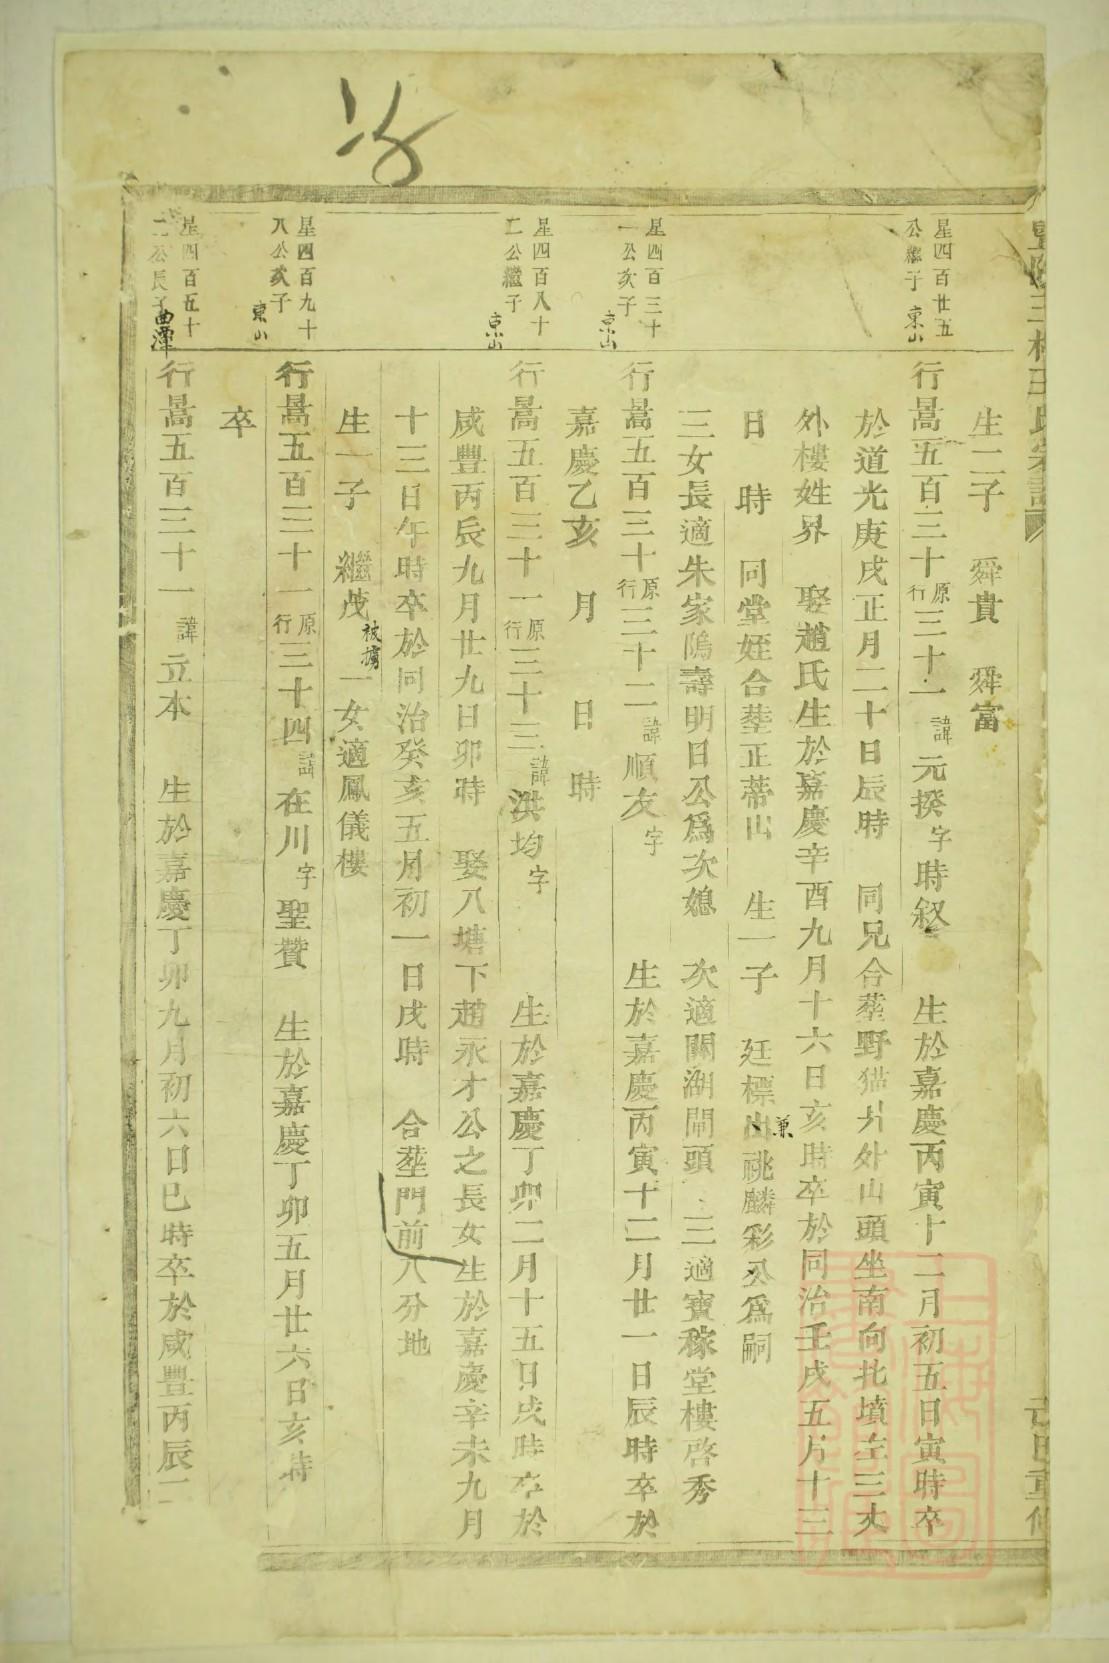 生二子 舜貴 舜富
星四百廿五
公繼子 東山
行暠五百三十原行三十一諱元揆字時叙 生於嘉慶丙寅十二月初五日寅時卒
於道光庚戌正月二十日辰時 同兄合塟野猫外山頭坐南向北墳左三丈
外樓姓界 娶趙氏生於嘉慶辛酉九月十六日亥時卒於同治壬戌五月十三
日 時 同堂姪合塟正蒂山 生一子 廷標兼祧麟彩公爲嗣
三女長適朱家隖壽明日公爲次媳 次適關湖閘頭 三適寶稼堂樓啓秀
星四百三十
一公次子 東山
行暠五百三十原行三十二諱順友字 生於嘉慶丙寅十二月廿一日辰時卒於
嘉慶乙亥 月 日 時
星四百八十
二公繼子 東山
行暠五百三十一原行三十三諱洪均字 生於嘉慶丁卯二月十五日戌時卒於
咸豐丙辰九月廿九日卯時 娶八塘下趙永才公之長女生於嘉慶辛未九月
十三日午時卒於同治癸亥五月初一日戌時 合塟門前八分地
生一子 繼茂被擄 一女適鳳儀樓
星四百九十
八公次子 東山
行暠五百三十一原行三十四諱在川字聖贊 生於嘉慶丁卯五月廿六日亥時
卒
星四百五十
二公長子 曲潭
行暠五百三十一諱立本 生於嘉慶丁卯九月初六日巳時卒於咸豐丙辰二